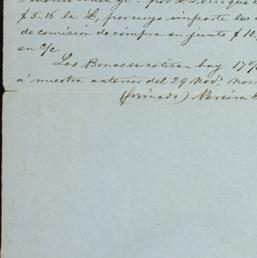 $5.16 la £, por cuyo importe les
de comision de compra en junto $10,
en c/c
Los Bonos se cotizan hoy 17%
á nuestra anterior del 29 Novr. nos
(firmado) Pereira